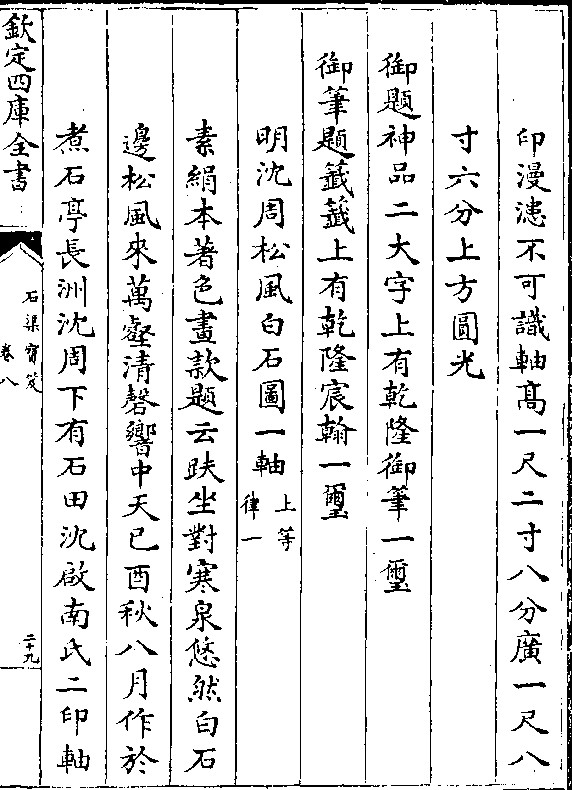 印漫漶不可識軸高一尺二寸八分廣一尺八
寸六分上方圓光
御題神品二大字上有乾隆御筆一璽
御筆題籤籤上有乾隆宸翰一璽
明沈周松風白石圖一軸上等
律一
素絹本著色畫款題云趺坐對寒泉悠然白石
邊松風來萬壑清磬響中天已酉秋八月作於
煮石亭長洲沈周下有石田沈啟南氏二印軸
欽定四庫全書
石渠寳笈
卷八
二十九